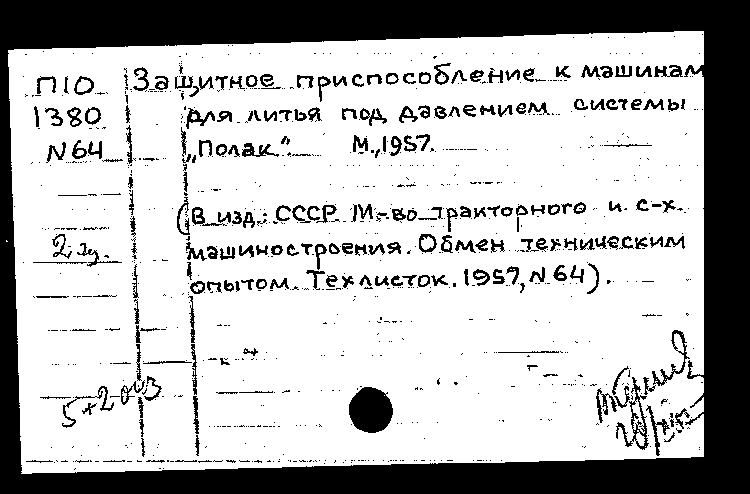 П10 Защитное приспособление к машинам
1380 для литья под давлением системы
N64 „Полак“. М.,1957.
(В изд.: СССР М-во тракторного и с-х.
2 эк. машиностроения. Обмен техническим
опытом. Техлисток. 1957, N64).
5+2